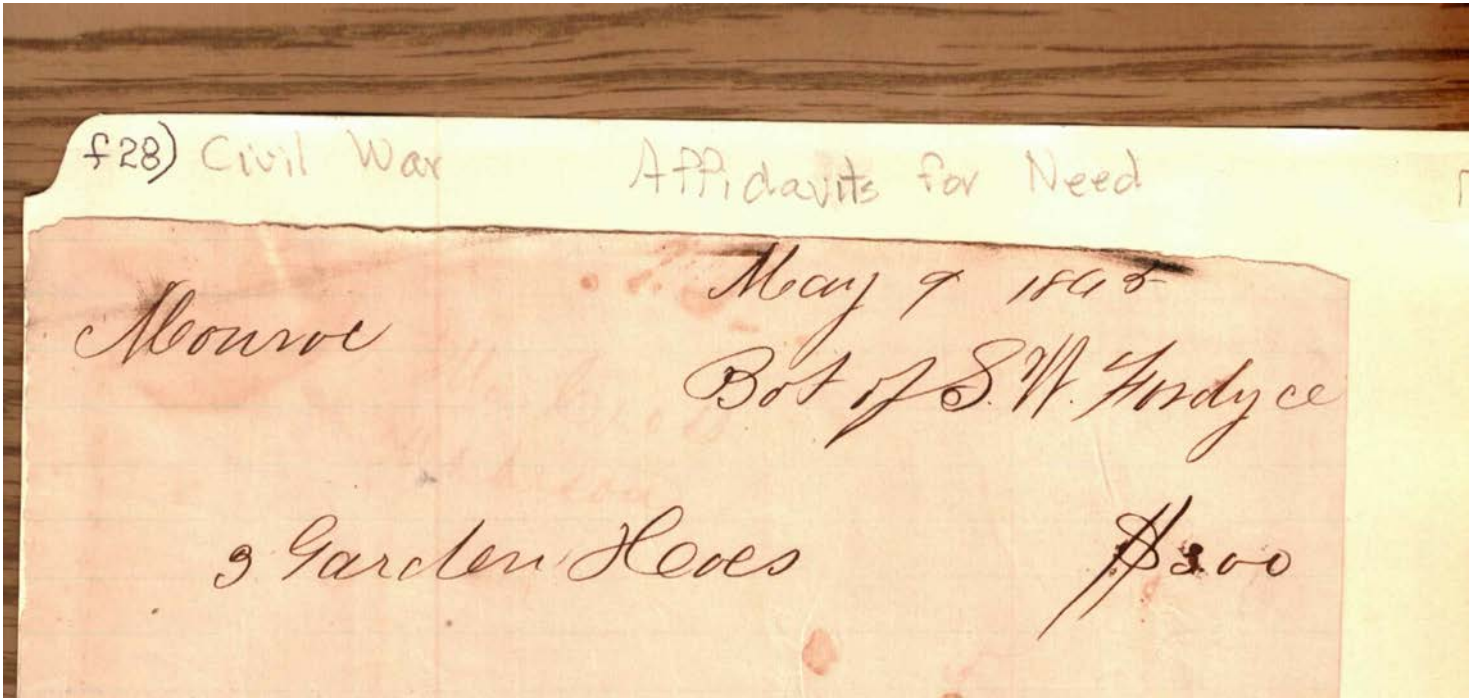 f28) Civil War Affidavits for Need
May 9 1865
Monroe
Bot of S. W. Fordyce
3 Garden Hoes $3.00